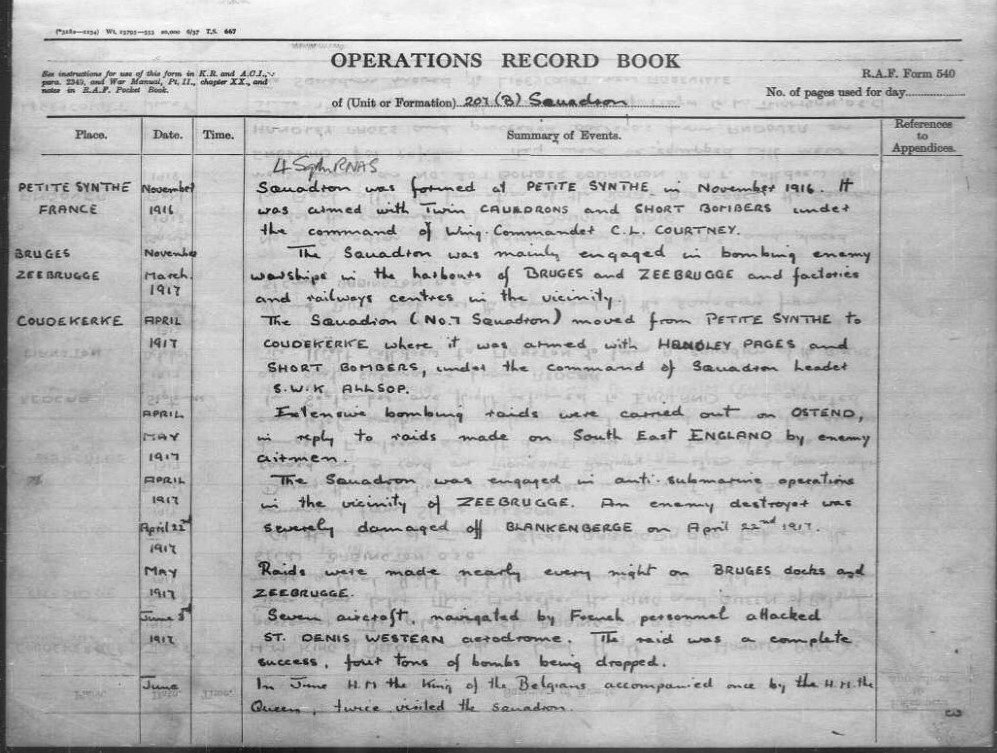 (*3282—1234) Wt. 23795—333 20,000 8/37 T.S. 667
OPERATIONS RECORD BOOK
See instructions for use of this form in K.R. and A.C.I.,
para. 2349, and War Manual, Pt. II., chapter XX., and
notes in R.A.F. Pocket Book.
R.A.F. Form 540
of (Unit or Formation) 207 (B) Squadron
No. of pages used for day
Place. Date. Time. Summary of Events. References to Appendices.
4 Sqdn RNAS
PETITE SYNTHE November Squadron was formed at PETITE SYNTHE in November 1916. It
FRANCE 1916 was armed with Twin CAUEDRONS and SHORT BOMBERS under
the command of Wing-Commander C.L. COURTNEY.
BRUGES November The Squadron was mainly engaged in bombing enemy
ZEEBRUGGE March warships in the harbours of BRUGES and ZEEBRUGGE and factories
1917 and railways centres in the vicinity.
COUDEKERKE APRIL The Squadron (No.7 Squadron) moved from PETITE SYNTHE to
1917 COUDEKERKE where it was armed with HANDLEY PAGES and
SHORT BOMBERS, under the command of Squadron Leader
S.W.K. ALLSOP.
APRIL Extensive bombing raids were carried out on OSTEND,
MAY in reply to raids made on South East ENGLAND by enemy
1917 airmen.
APRIL The Squadron was engaged in anti-submarine operations
1917 in the vicinity of ZEEBRUGGE. An enemy destroyer was
April 22nd severely damaged off BLANKENBERGE on April 22nd 1917.
1917
MAY Raids were made nearly every night on BRUGES docks and
1917 ZEEBRUGGE.
June 3rd Seven aircraft, navigated by French personnel attacked
1917 ST. DENIS WESTERN aerodrome. The raid was a complete
success, four tons of bombs being dropped.
June In June H.M the King of the Belgians accompanied once by the H.M. the
Queen, twice visited the squadron.